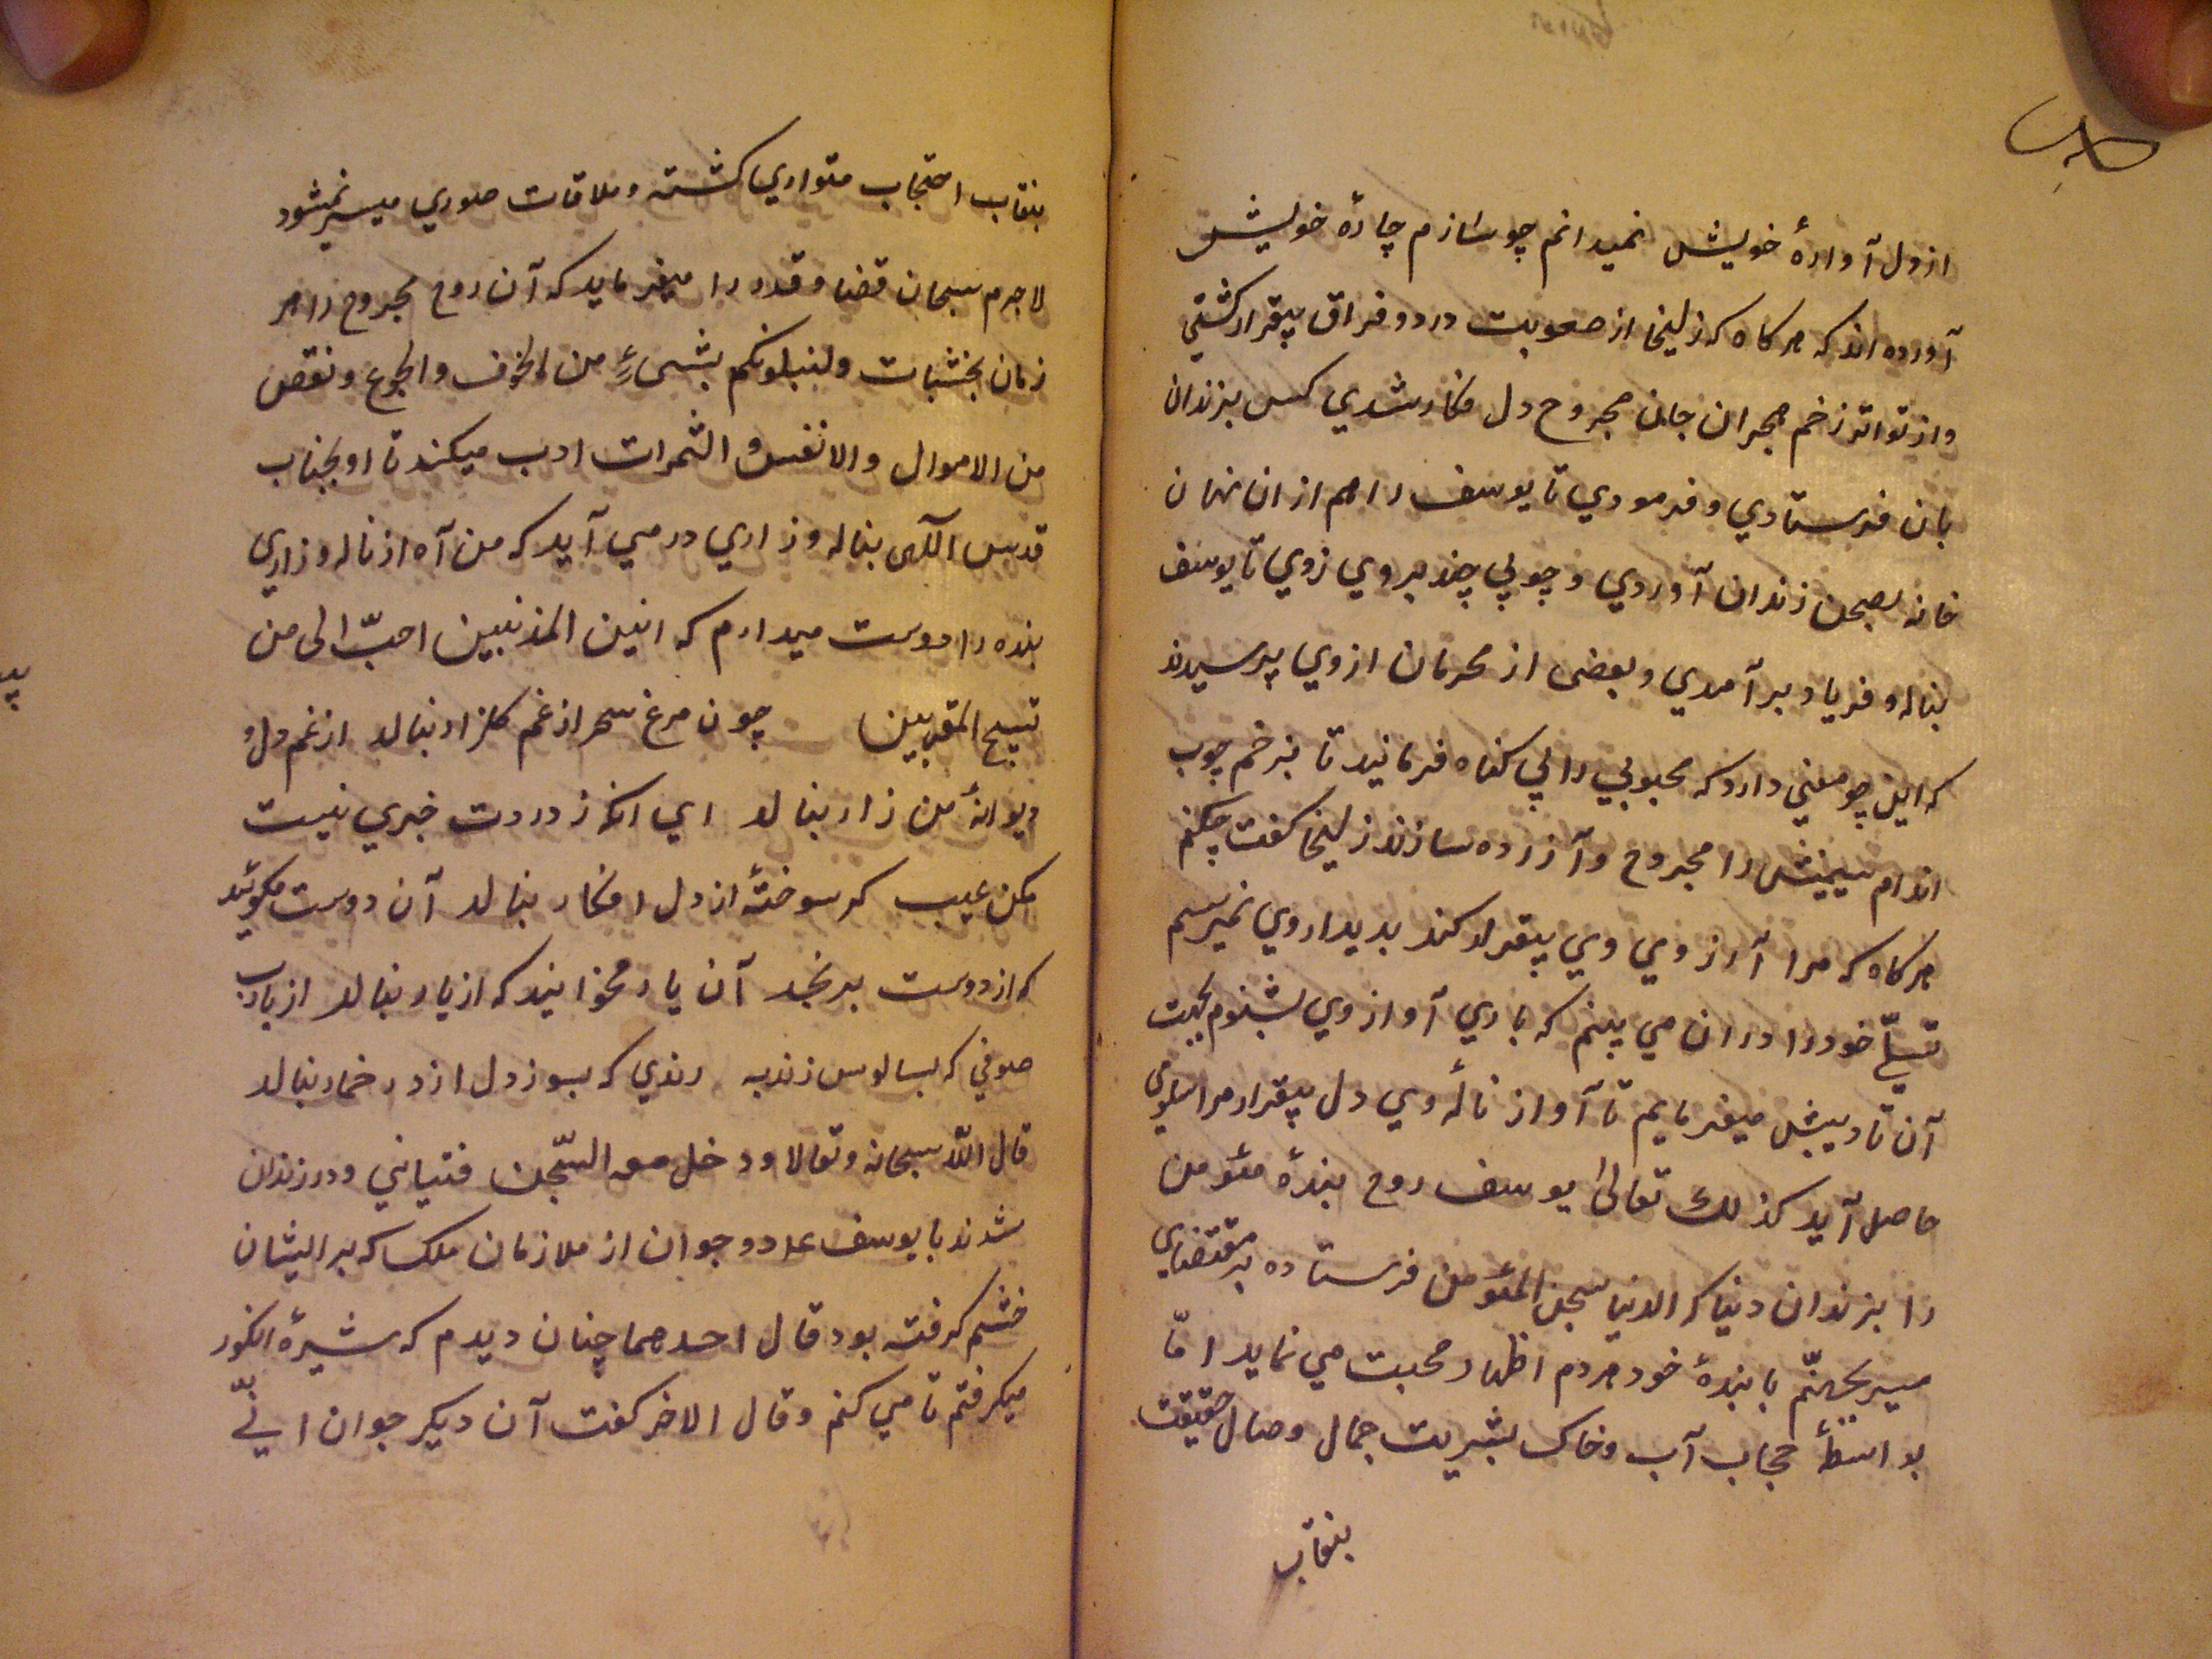 از دل آوارهٔ خویش نمیدانم چو سازم چارهٔ خویش
آورده اند که هرکاه که زلیخا از صعوبت درد و فراق بیقرار کشتی
واز تواتر زخم هجران جان مجروح دل فکار شدی کس بزندان
بان فرستادی و فرمودی تا یوسف را هم از ان نهان
خانه بصحن زندان آوردی و چوبی چند بروی زوی تا یوسف
بناله و فریاد بر آمدی وبعضی از محرمان ازوی پرسیدند
که این چو معنی دارد که محبوبی را بی کناه فرمائید تا بزخم چوب
اندام سیمینش را مجروح وآزرده سازند زلیخا کفت چکنم
هرکاه که مرا آرزوی وی بیقرار کند بدیدار وی نمیرسم
تسلّی خود را در ان می بینم که باری آواز وی بشنوم بجهت
آن تادیبش میفرمایم تا آواز نالهٔ وی دل بیقرار مرا سلوتی
حاصل آید کذلک تعالی یوسف روح بندهٔ مئومن
را بزندان دنیا که الدنیا سجن المئومن فرستاده بر مقتضای
سیر یحبهّم با بندهٔ خود هردم اظهار محبت می نماید امّا
بواسطهٔ حجاب آب وخاک بشریت جمال وصال حقیقت
بنقاب
بنقاب احتجاب متواری کشته وملاقات صوری میسر نمیشود
لاجرم سبحان قضا وقدر را میفرماید که آن روح مجروح را هر
زمان بخشبات ولنبلونکم بشیءٍ من الخوف والجوع ونقص
من الاموال والانفس و الثمرات ادب میکند تا او بجناب
قدس الٓهی بناله وزاری درمی آید که من آه از ناله وزاری
بنده را دوست میدارم که انین المذنبین احبّ الی من
تسبیح المقربین چون مرغ سحر از غم کلزار بنالد از غم دل و
دیوانهٔ من زار بنالد ای انکه ز دردت خبری نیست
مکن عیب کر سوختهٔ از دل افکار بنالد آن دوست مکوئید
که از دوست برنجد آن یار مخوانید که از یار بنالد از یارب
صوفی که بسالوس زند به رندی که بسوز دل از درد خمار بنالد
قال الله سبحانه وتعالا ودخل معه السّجن فتیانی ودر زندان
شدند با یوسف عم دو جوان از ملازمان ملک که بر ایشان
خشم کرفته بود قال احدهما چنان دیدم که شیرهٔ انکور
میکرفتم تا می کنم وقال الاخر کفت آن دیکر جوان انیّ